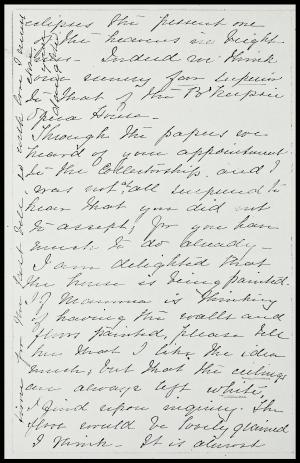 eclipses the present one
of the heavens in bright
ness - Indeed we think
our scenery far superior
to that of the Po'Keepsie
Opera House -
Through the papers we
heard of your appointment
to the Collectorship and I
was not at all surprised to
hear that you did not
to accept, for you have
much to do already -
I am delighted that
the house is being painted.
If Mamma is thinking
of having the walls and
floors painted, please tell
her that I like the idea
much, but that the ceilings
are always left white,
I find upon inquiry. The
floor would be lovely grained
I think - It is almost
time for the last bell, so with love I must